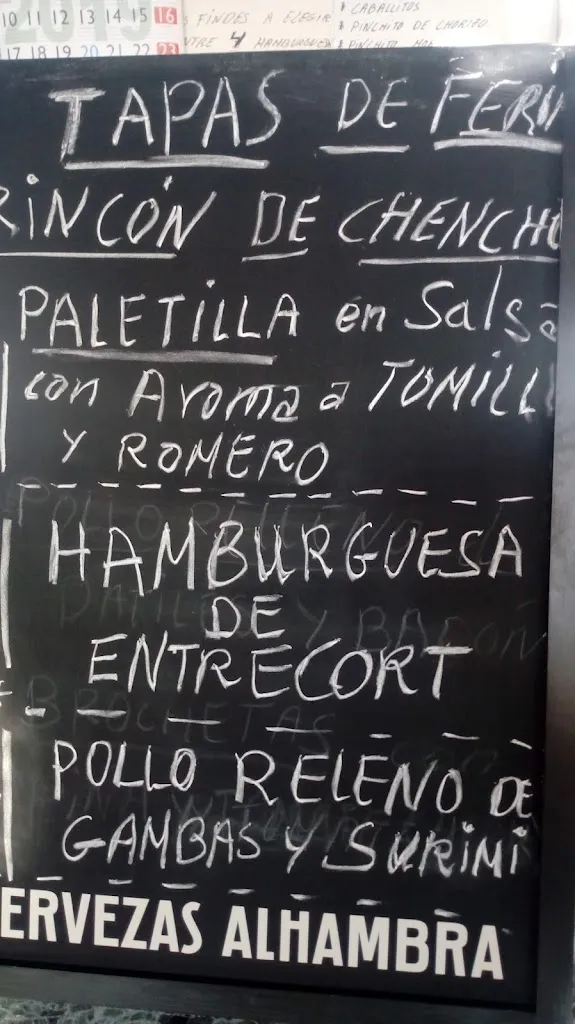 2019
10 11 12 13 14 15 16
17 18 19 20 21 22 23
FINDES A ELEGIR
NTRE 4 HAMBURGUES
CABALLITOS
PINCHITO DE CHORIZO
PINCHITO
TAPAS DE FERI
RINCÓN DE CHENCHO
PALETILLA en Salsa
con Aroma a TOMILL
Y ROMERO
HAMBURGUESA
DE
ENTRECORT
POLLO RELENO DE
GAMBAS Y SURIMI
POLLO RELLENO DE
DATILES Y BACON
BROCHETAS
ERVEZAS ALHAMBRA